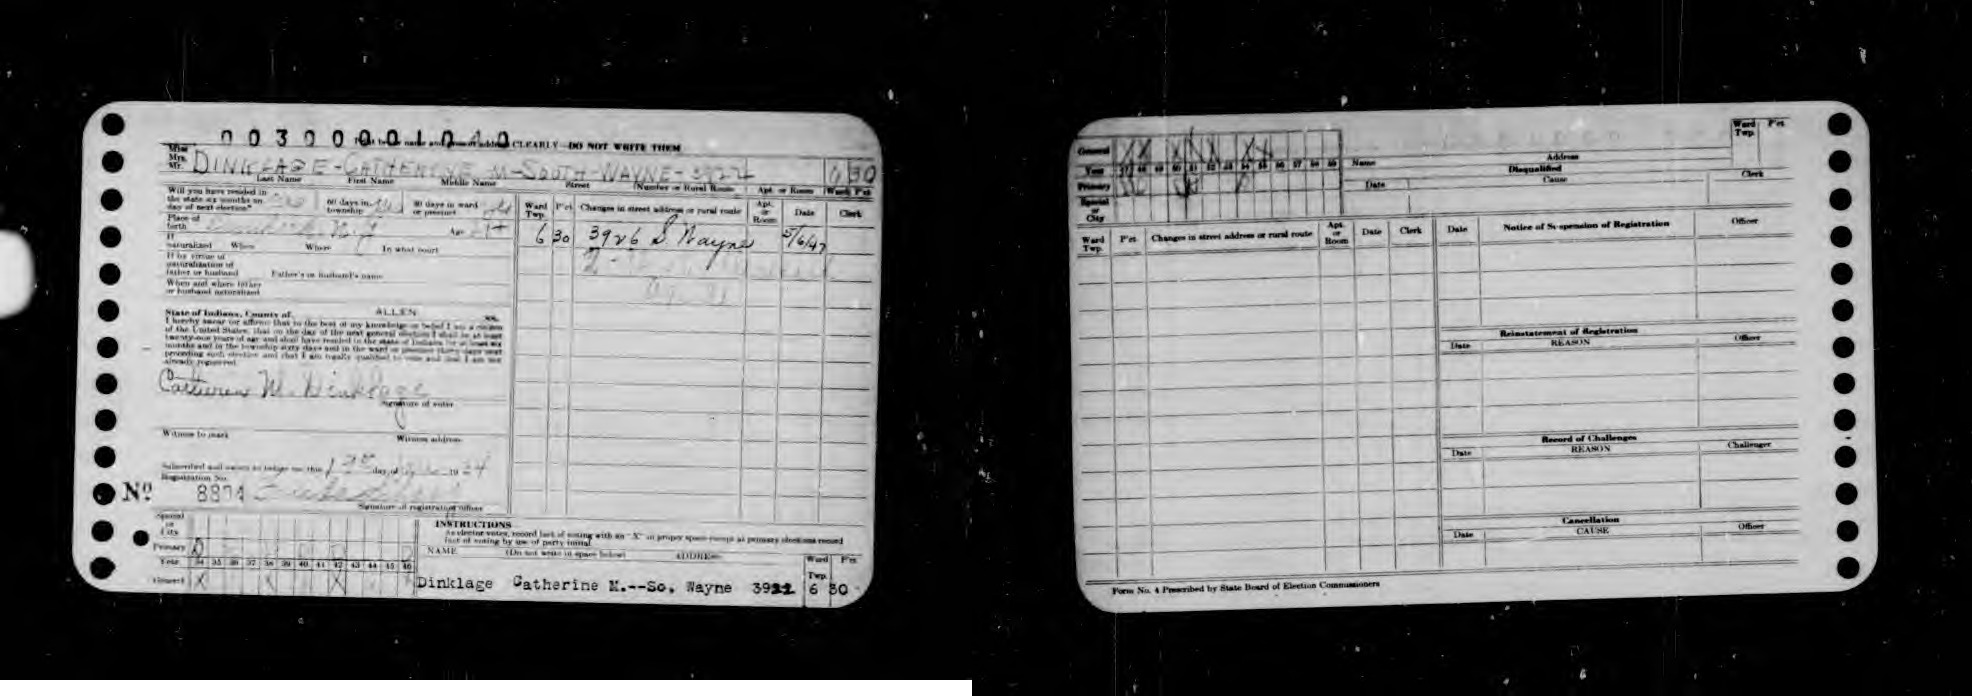 0030000104 0
CLEARLY—DO NOT WRITE THEM
Miss
Mrs.
Mr. DINKLAGE-CATHERINE M-SOUTH-WAYNE-3922 6 30
Last Name First Name Middle Name Street (Number or Rural Route) Apt. or Room Ward Pct
Will you have resided in the state six months on day of next election? 60 days in township 30 days in ward or precinct
Ward Twp. P'ct Changes in street address or rural route Apt. or Room Date Clerk
Place of birth Age
6 30 3926 S Wayne 5/6/47
If naturalized When Where In what court
2-
If by virtue of naturalization of father or husband Father's or husband's name
When and where father or husband naturalized
State of Indiana, County of ALLEN ss.
I hereby swear (or affirm) that to the best of my knowledge or belief I am a citizen
of the United States, that on the day of the next general election I shall be at least
twenty-one years of age and shall have resided in the state of Indiana for at least six
months and in the township sixty days and in the ward or precinct thirty days next
preceding such election and that I am legally qualified to vote and that I am not
already registered.
Catherine M. Dinklage
Signature of voter
Witness to mark Witness address
Subscribed and sworn to before me this day of 1934
Registration No.
No 8874
Signature of registration officer
Special or City
Primary
Year 34 35 36 37 38 39 40 41 42 43 44 45 46
General X X X
INSTRUCTIONS
As elector votes, record fact of voting with an "X" in proper space except at primary elections record
fact of voting by use of party initial
NAME (Do not write in space below) ADDRESS Ward Twp. P'ct
Dinklage Catherine M.--So. Wayne 3922 6 30
General X X X X X X
Year 47 48 49 50 51 52 53 54 55 56 57 58 59
Primary
Special or City
Name Address Ward Twp. P'ct
Disqualified
Date Cause Clerk
Ward Twp. P'ct Changes in street address or rural route Apt. or Room Date Clerk
Date Notice of Suspension of Registration Officer
Reinstatement of Registration
Date REASON Officer
Record of Challenges
Date REASON Challenger
Cancellation
Date CAUSE Officer
Form No. 4 Prescribed by State Board of Election Commissioners